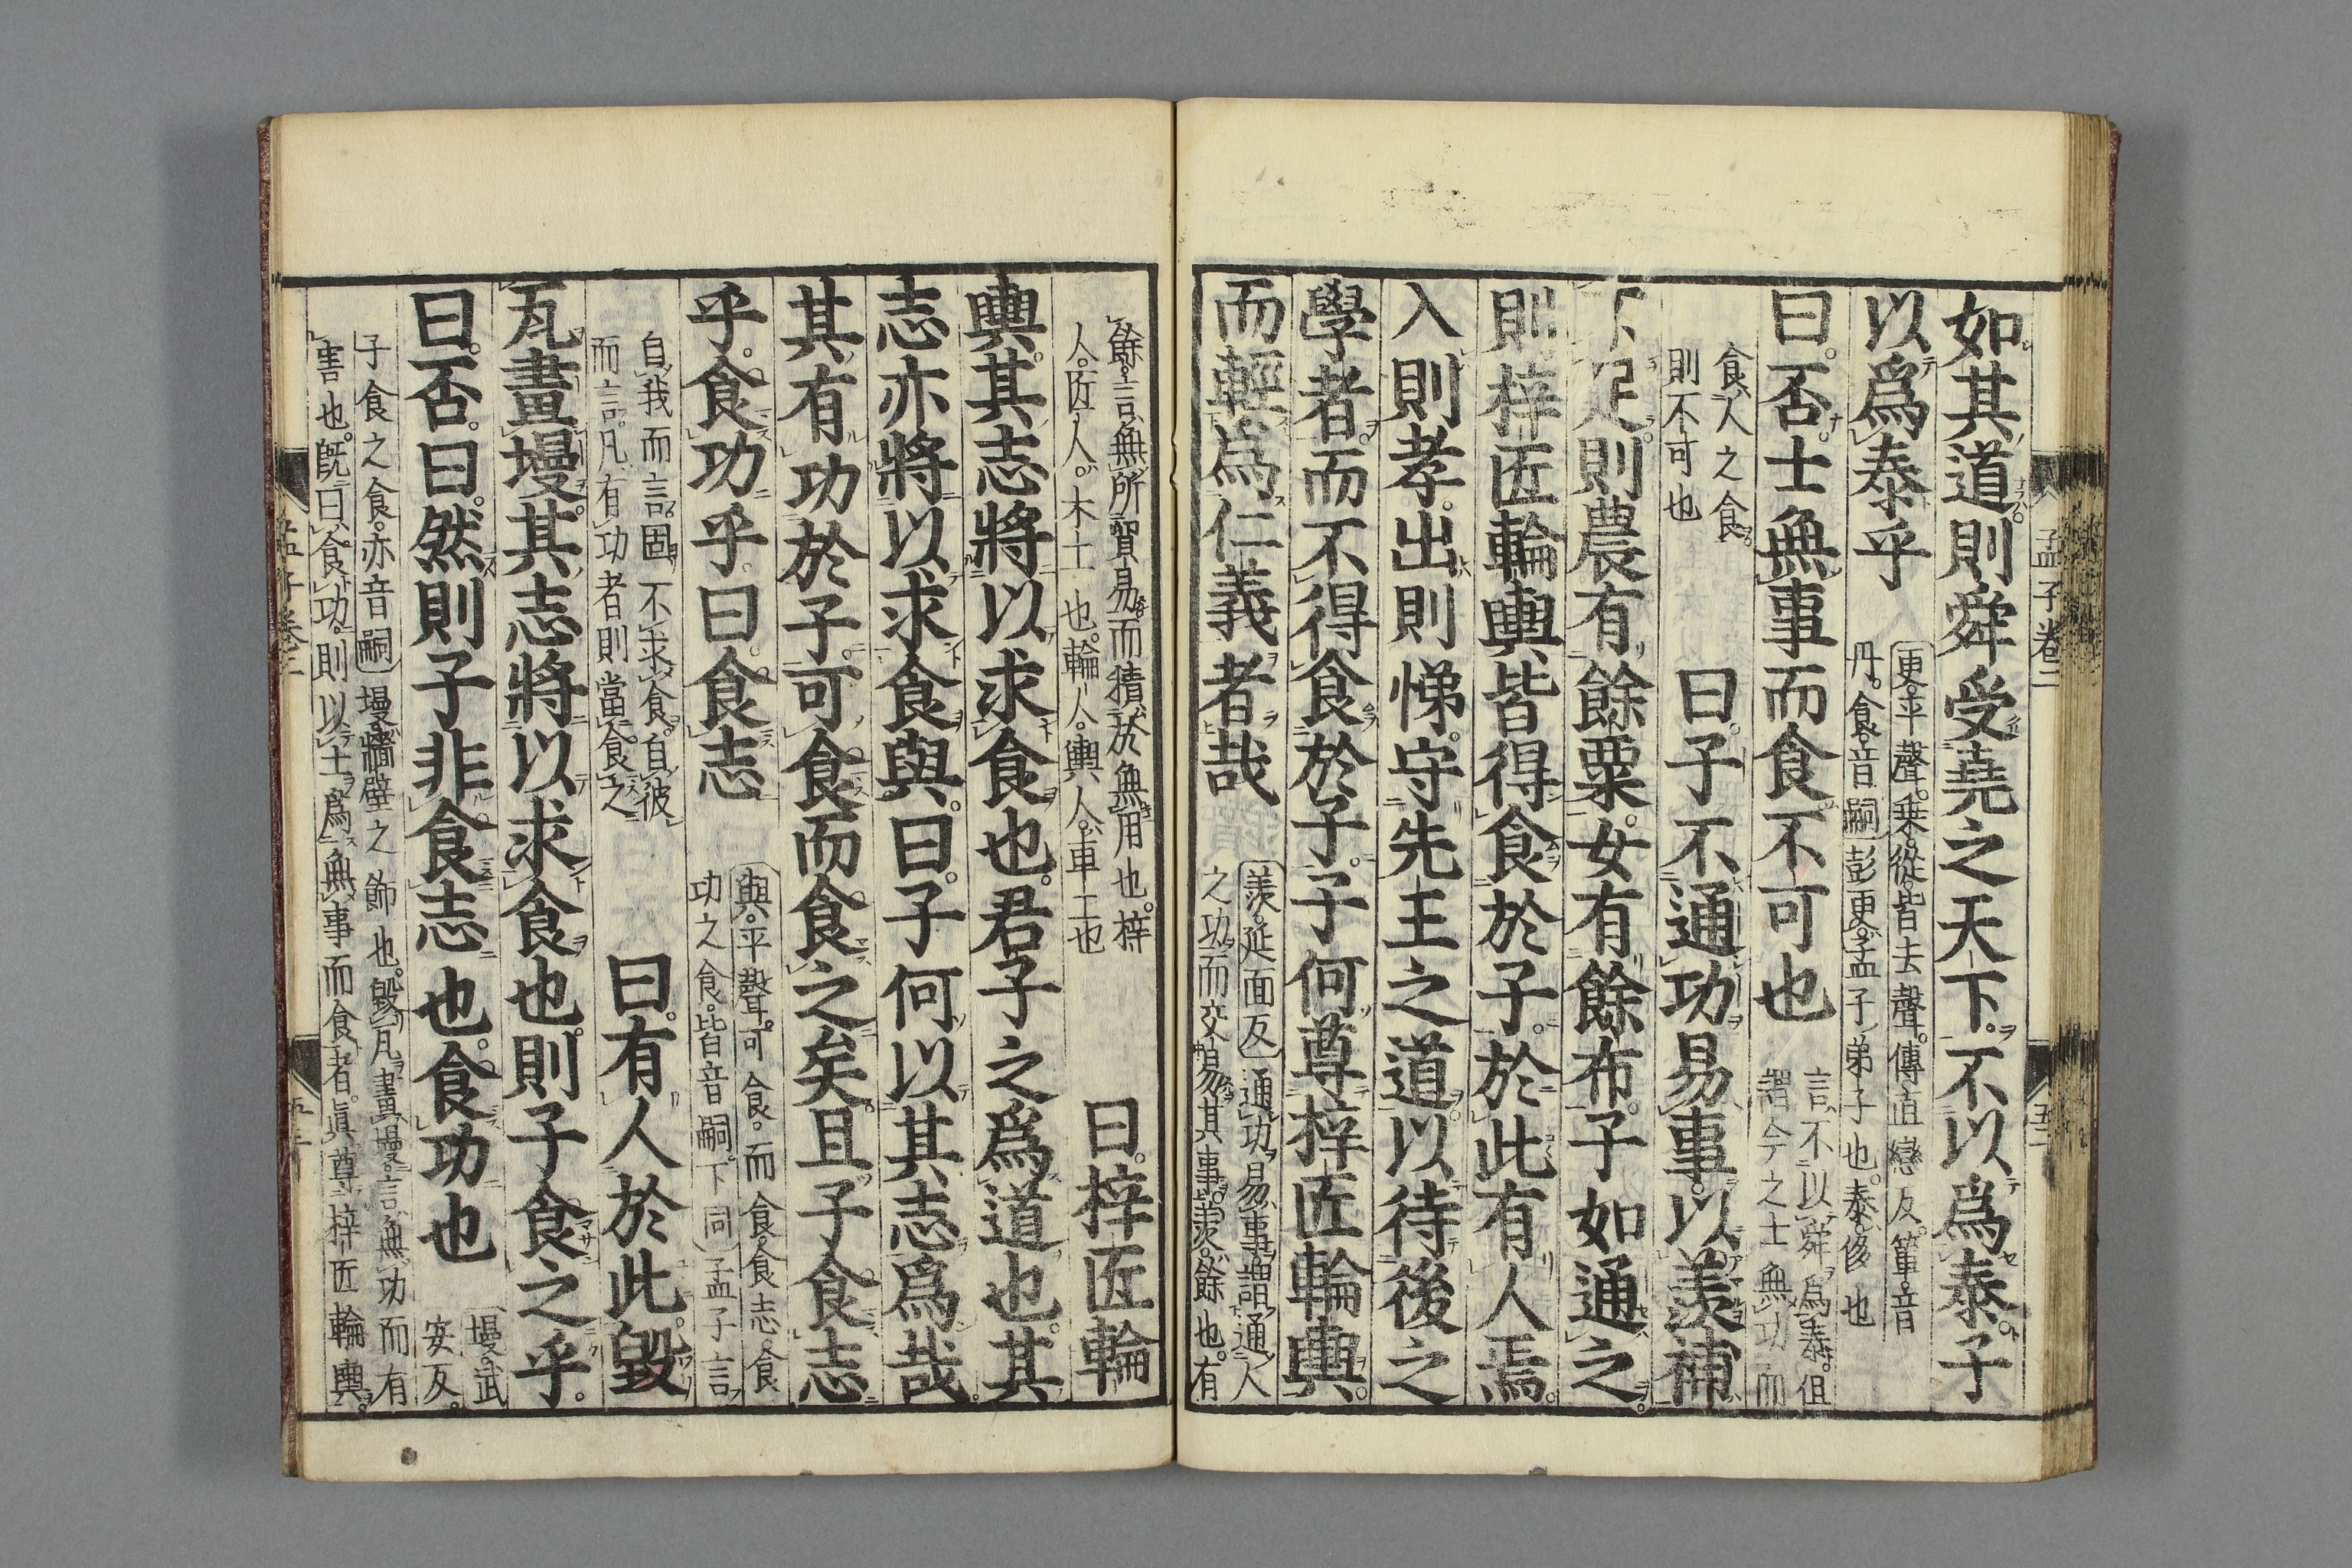 孟子卷三
如其道則舜受堯之天下不以爲泰子
以爲泰乎
更平聲乗從皆去聲傳直戀反簞音
丹食音嗣彭更孟子弟子也泰侈也
曰否士無事而食不可也
言不以舜爲泰但
謂今之士無功而
食人之食
則不可也
曰子不通功易事以羨補
不足則農有餘粟女有餘布子如通之
則梓匠輪輿皆得食於子於此有人焉
入則孝出則悌守先王之道以待後之
學者而不得食於子子何尊梓匠輪輿
而輕爲仁義者哉
羨延面反通功易事謂通人
之功而交易其事羨餘也有
餘言無所貿易而積於無用也梓
人匠人木工也輪人輿人車工也
曰梓匠輪
輿其志將以求食也君子之爲道也其
志亦將以求食與曰子何以其志爲哉
其有功於子可食而食之矣且子食志
乎食功乎曰食志
與平聲可食而食食志食
功之食皆音嗣下同孟子言
自我而言固不求食自彼
而言凡有功者則當食之
曰有人於此毀
瓦畫墁其志將以求食也則子食之乎
曰否曰然則子非食志也食功也
墁武
安反
子食之食亦音嗣墁牆壁之飾也毀瓦畫墁言無功而有
害也既曰食功則以士爲無事而食者眞尊梓匠輪輿
孟子卷三